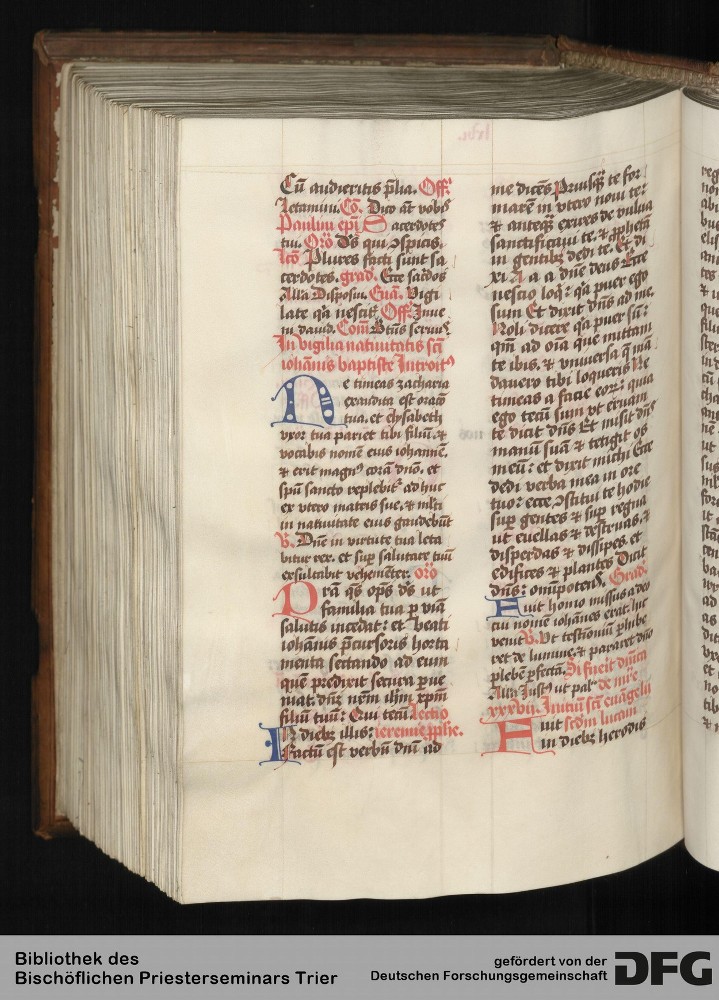 Cū audieritis p̄lia. Off.
Letamini. Cō. Dico āt vobꝭ
Paulini ep̄i Sacerdotes
tui. Orō Ds̄ qui ꝯspicis.
Lcō Plures facti sunt sa
cerdotes. grad. Ecce sac̄dos
All'a Disposui. Euā. Vigi
late q̄a nescitꝭ Off. Inue
ni dauid. Com̄ Btūs seruuꝭ
In vigilia natiuitatis sc̄i
iohānis baptiste Introitꝰ
Ne timeas zacharia
exaudita est oracō
tua. et elysabeth
vxor tua pariet tibi filiū. ⁊
vocabis nomē eius iohannē.
⁊ erit magnꝰ corā dn̄o. et
spū sancto replebitᷣ adhuc
ex vtero matris sue. ⁊ ml̄ti
in natiuitate eius gaudebūt
V. Dn̄e in virtute tua leta
bitur rex. et suꝑ salutare tuū
exsultabit vehemēter. orō
Prā q̄s op̄s ds̄ ut
familia tua ꝑ viā
salutis incedat: et beati
iohānis p̄cursoris horta
menta sectando ad eum
quē predixit secura ꝑue
niat. dn̄ꝫ nr̄m ih̄m xp̄m
filiū tuū: Qui tecū Lectio
In diebꝫ illis: ieremie ꝓph̄e.
Factū est verbū dn̄i ad
me dicēs Priusq̄ꝫ te for
marē in vtero noui te:
⁊ anteq̄ꝫ exires de vulua
sanctificaui te. ⁊ ꝓphetā
in gentibꝫ dedi te. Et di
xi A a a dn̄e deus Ecce
nescio loq̄: q̄a puer ego
sum Et dixit dn̄s ad me.
Noli dicere q̄a puer sū:
qm̄ ad oīa que mittam
te ibis. ⁊ vniuersa q̄ mā
dauero tibi loqueris Ne
timeas a facie eorꝝ: quia
ego tecū sum vt eruam
te dicit dn̄s Et misit dn̄s
manū suā ⁊ tetigit os
meū: et dixit michi Ecce
dedi verba mea in ore
tuo: ecce ꝯstitui te hodie
suꝑ gentes ⁊ suꝑ regna
ut euellas ⁊ destruas. ⁊
disperdas ⁊ dissipes. et
edifices ⁊ plantes Dicit
dn̄s: omīpotens. Grad.
Fuit homo missus a deo
cui nomē iohānes erat. hic
venit V. Vt testīoniū ꝑhibe
ret de lumine. ⁊ pararet dn̄o
plebē ꝑfectā. Si fuerit dn̄ica
All'a Justꝰ ut pal' de mīe
xxxvii. Initiū sc̄i euāgelii
Fuit scd̄m lucam
in diebꝫ herodis
Bibliothek des
Bischöflichen Priesterseminars Trier
gefördert von der
Deutschen Forschungsgemeinschaft
DFG